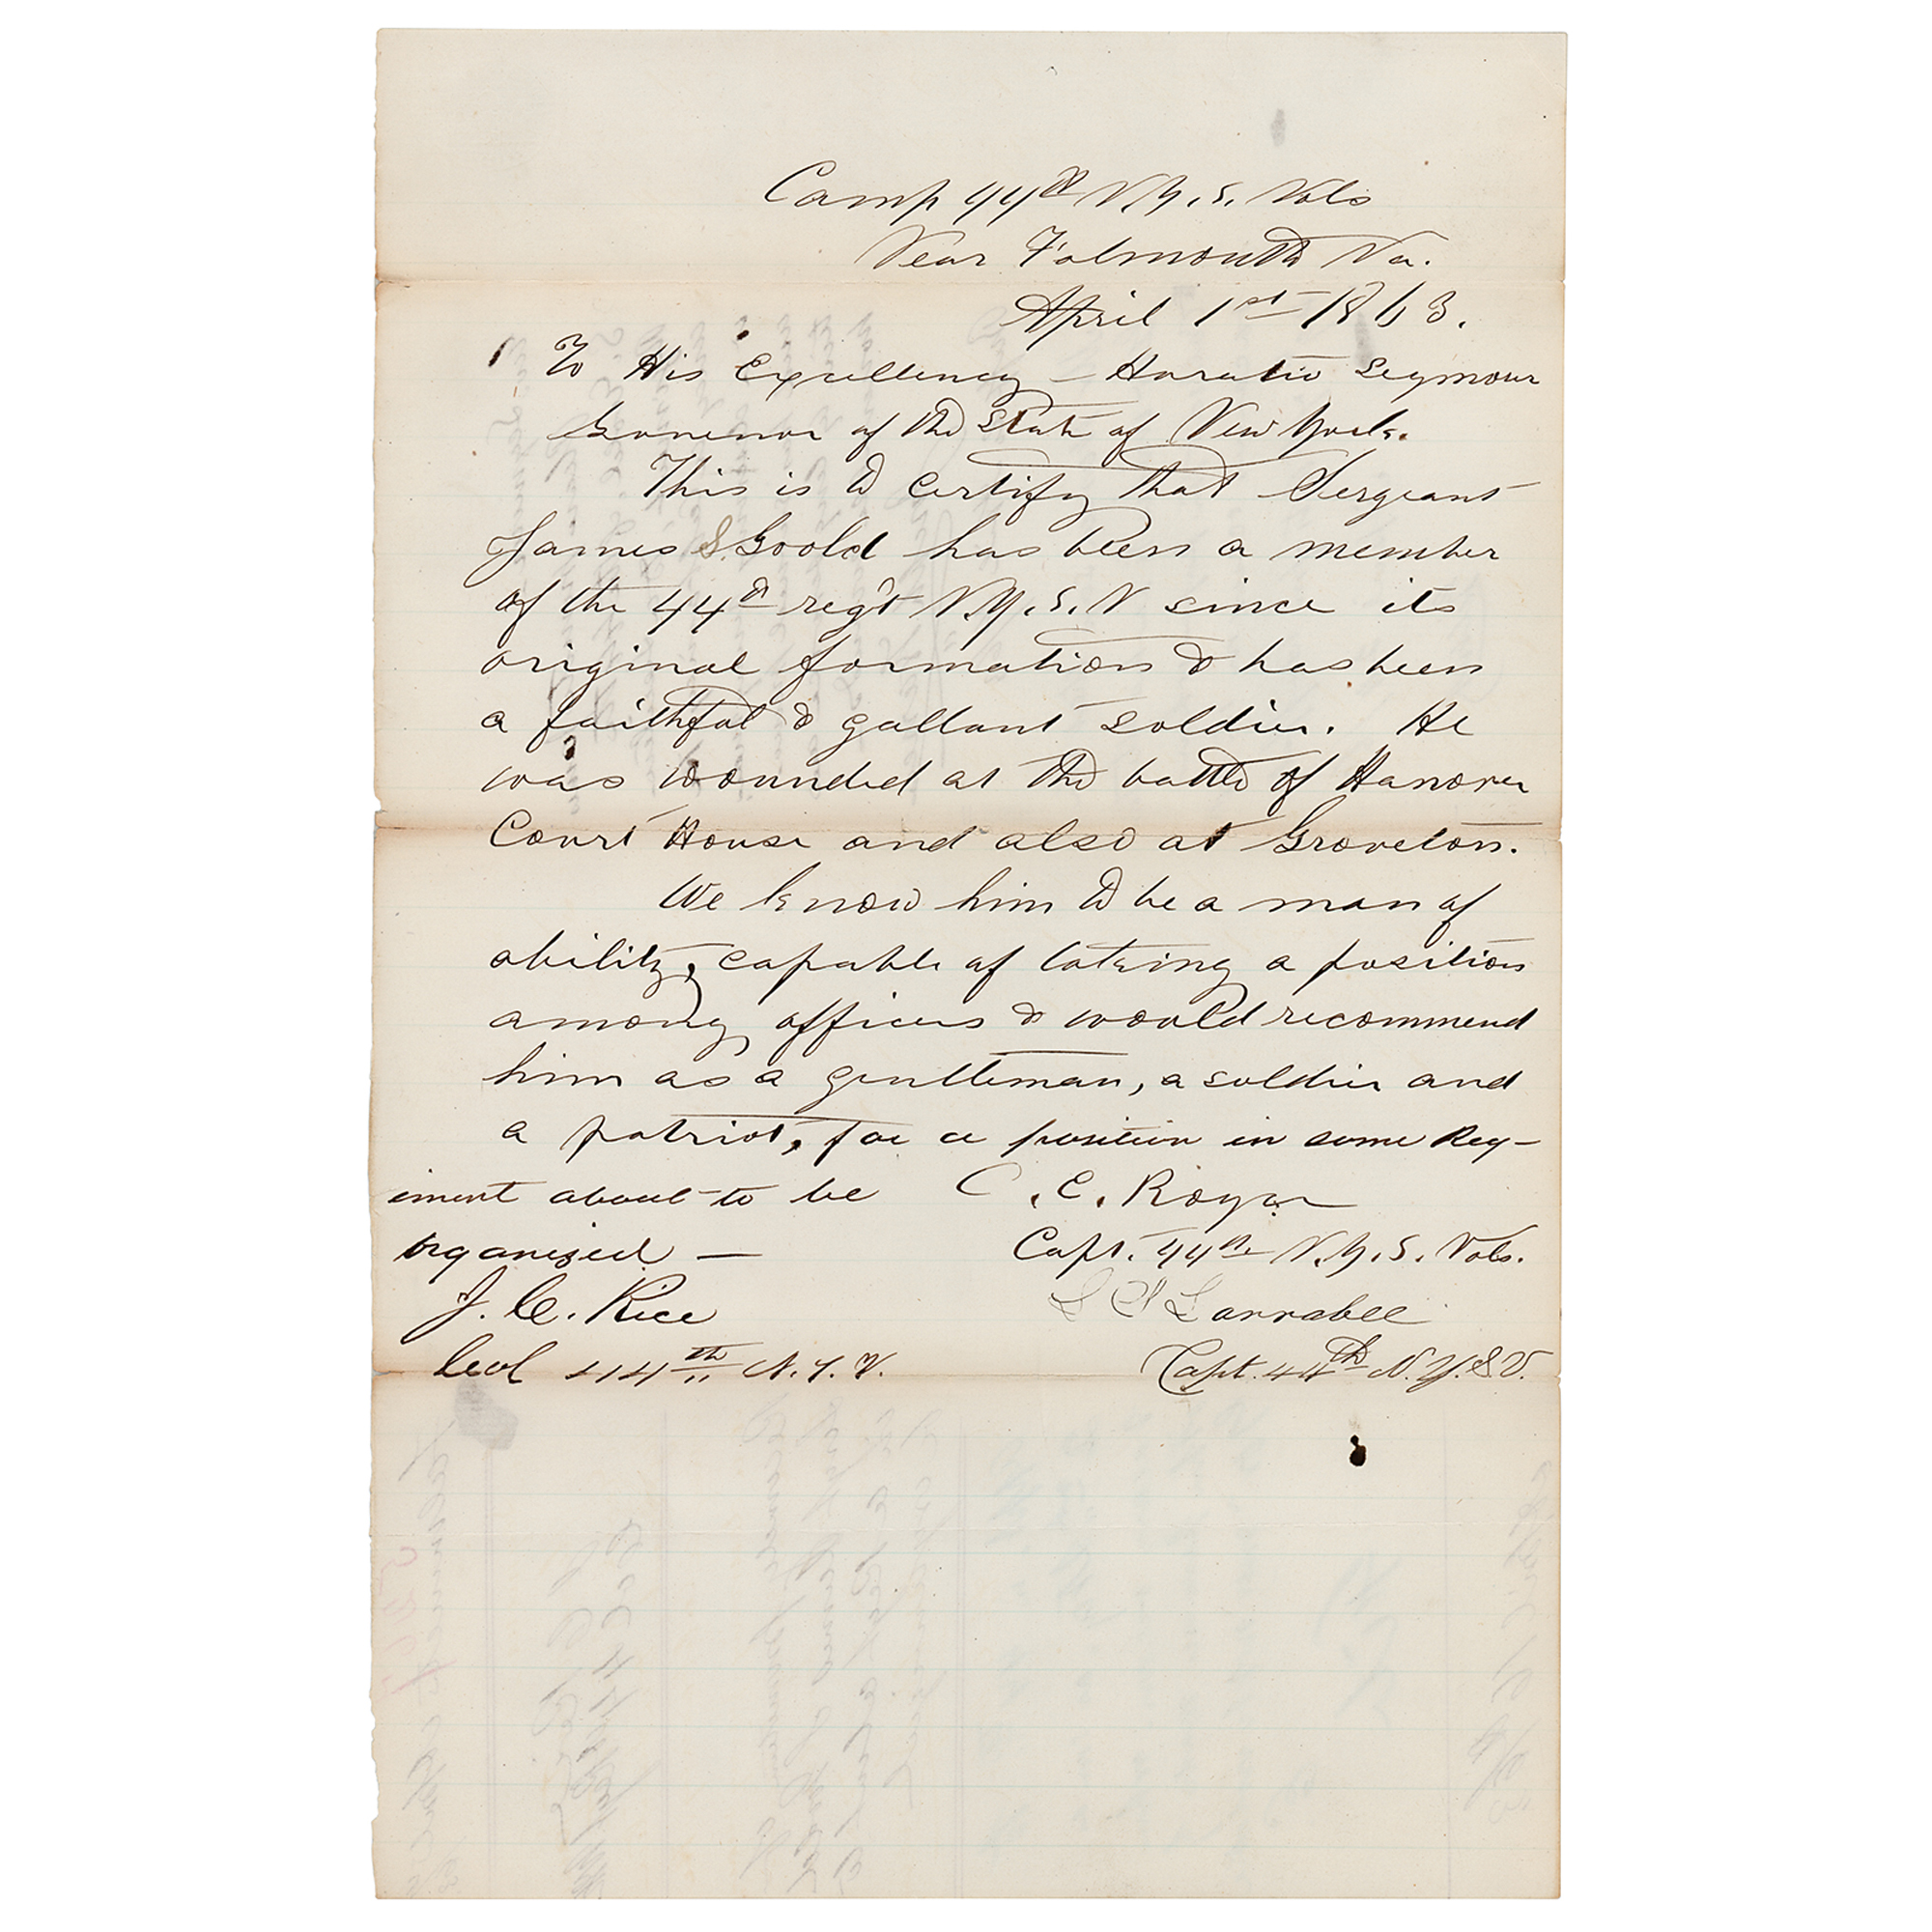 Camp 44th N.Y.S. Vols
Near Falmouth Va.
April 1st 1863.
To His Excellency - Horatio Seymour
Govenor of the State of New York.
This is to certify that Sergeant
James S. Goold has been a member
of the 44th reg't N.Y.S.V since its
original formation & has been
a faithful & gallant soldier. He
was wounded at the battle of Hanover
Court House and also at Groveton.
We know him to be a man of
ability, capable of taking a position
among officers & would recommend
him as a gentleman, a soldier and
a patriot, for a position in some Reg-
iment about to be
organized —
C. E. Royce
Capt. 44th N.Y.S. Vols.
J. C. Rice
Col 44th N.Y.V.
Larrabee
Capt. 44th N.Y.S.V.